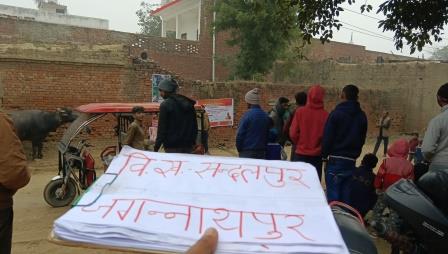 वि.स. सन्दलपुर
जगन्नाथपुर